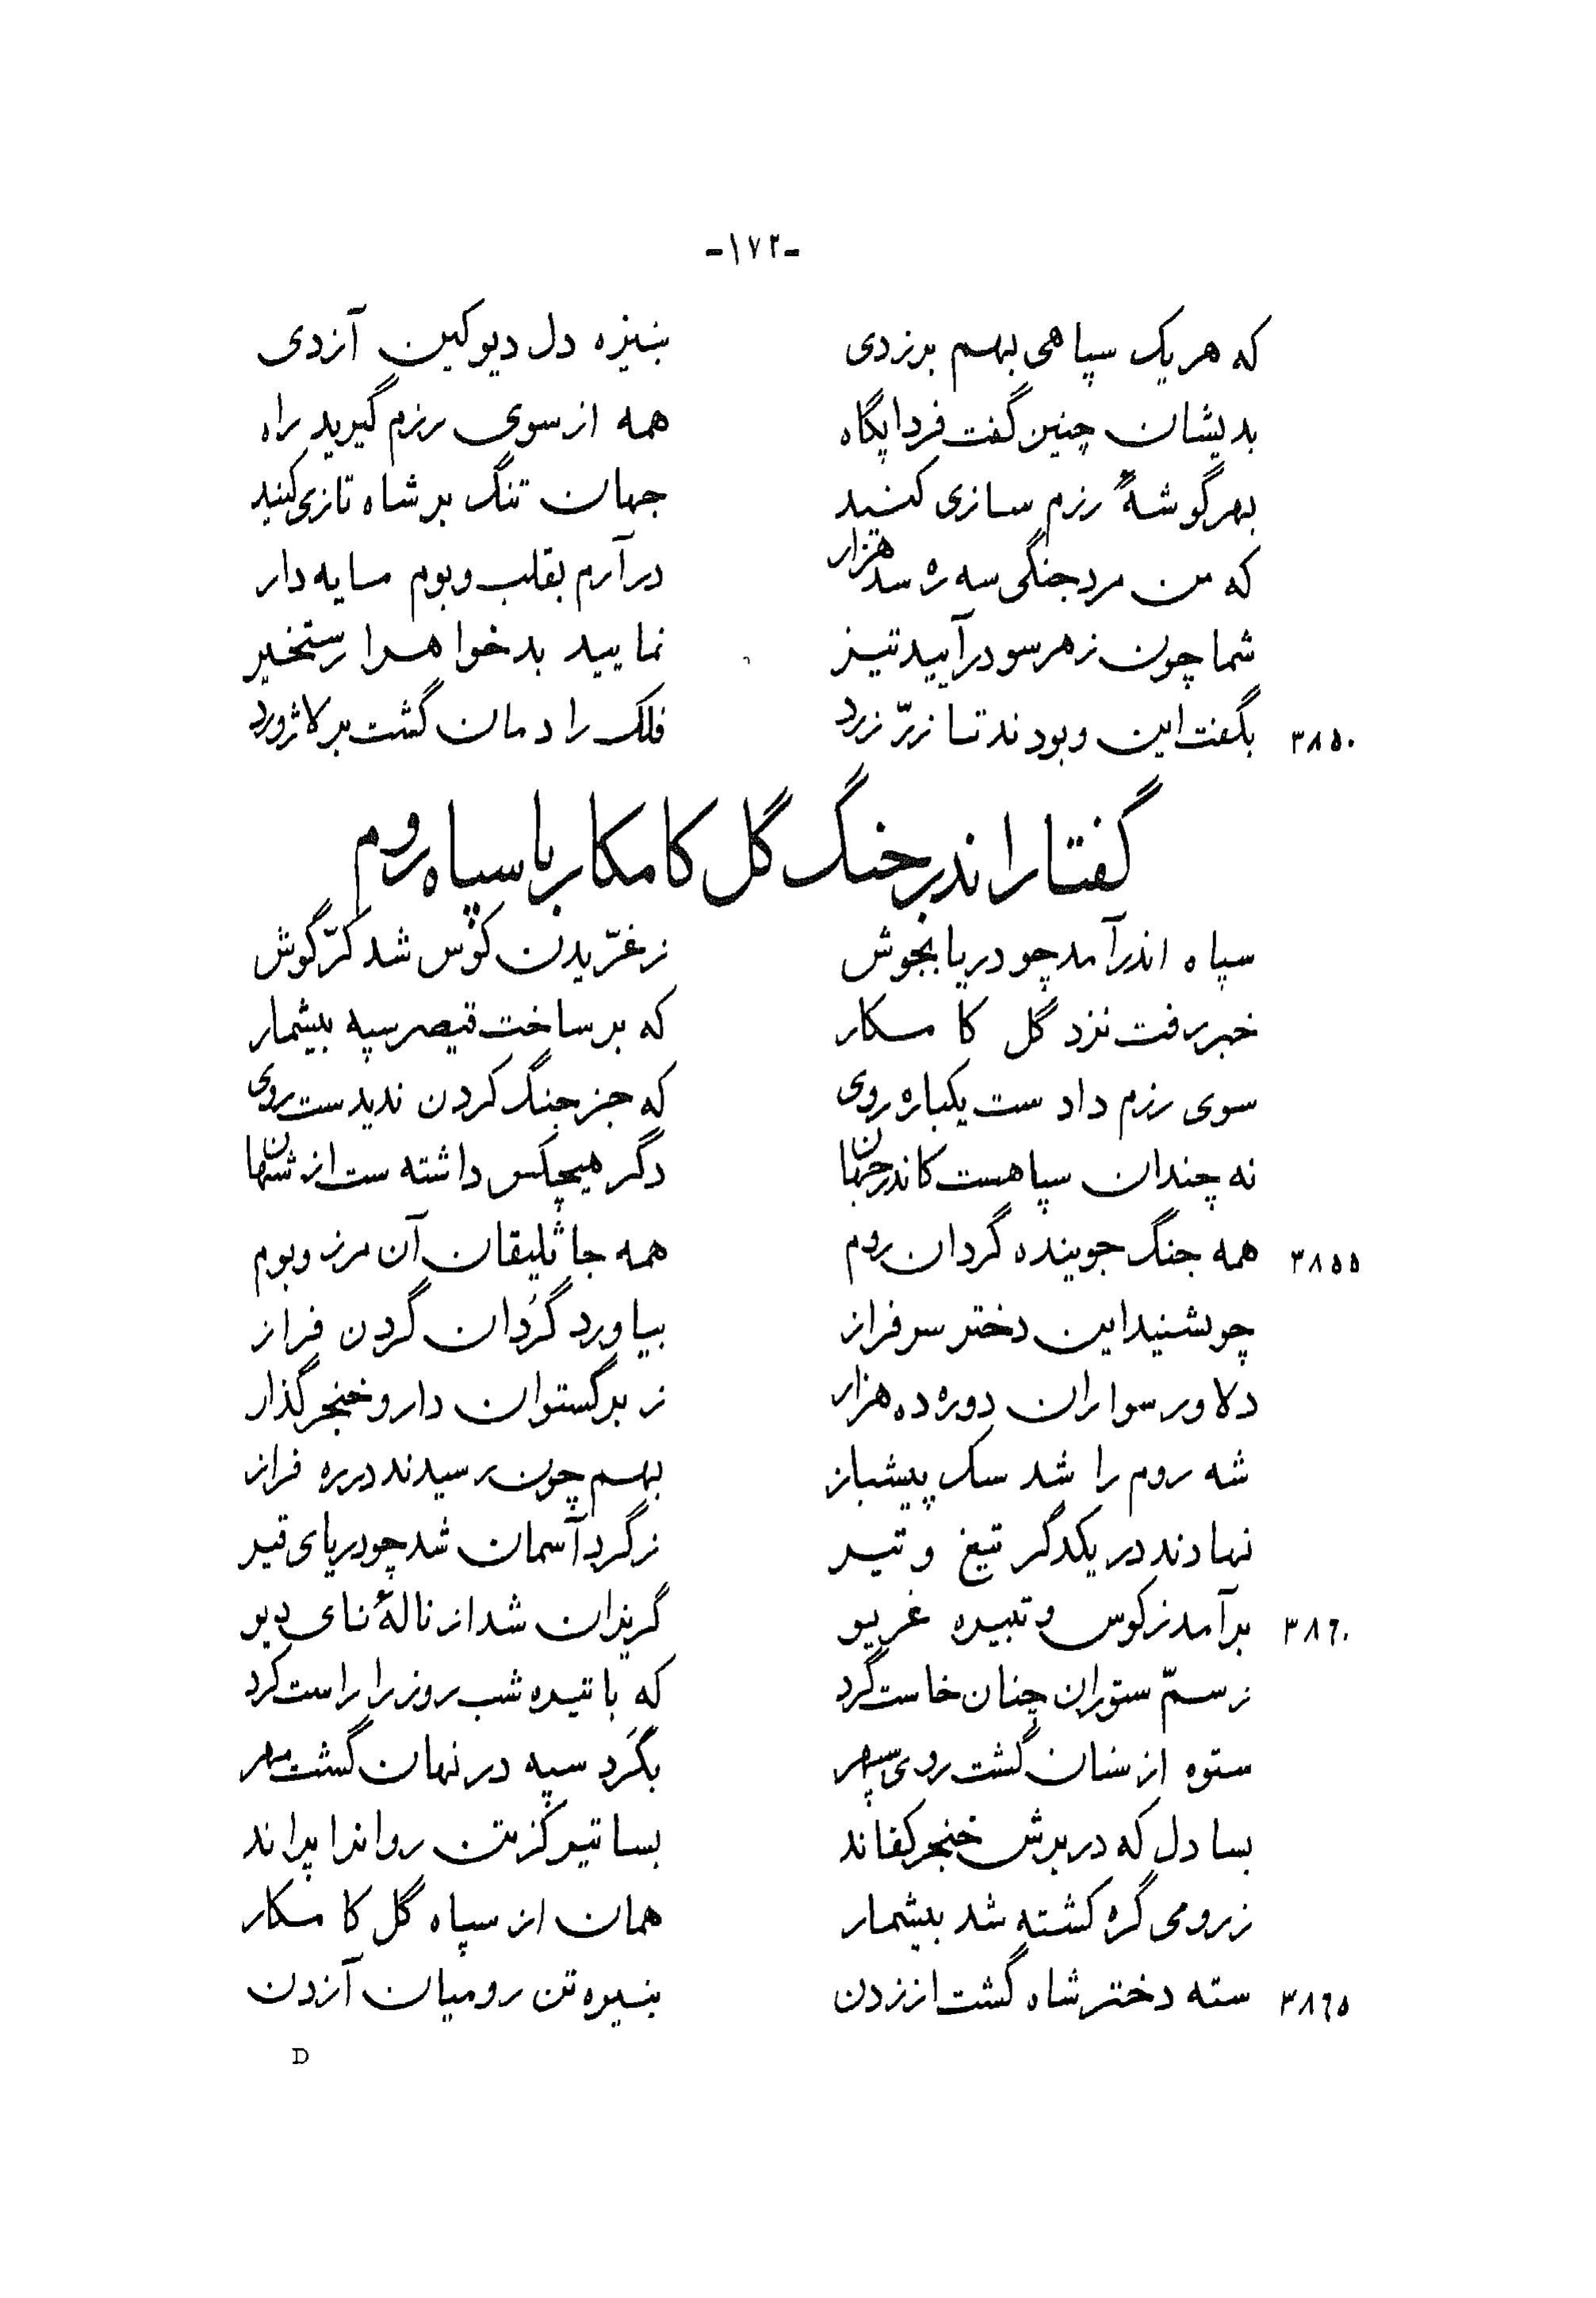 -۱۷۲-
که هر یک سپاهی بهم بر زدی بنیزه دل دیو کین آزدی
بدیشان چنین گفت فردا پگاه همه از سوی رزم گیرید راه
بهر گوشهٔ رزم سازی کنید جهان تنگ بر شاه تازی کنید
که من مرد جنگی سه ره سد هزار در آرم بقلب و بوم سایه دار
شما چون ز هر سو در آیید تیز نمایید بدخواه را رستخیز
۳۸۵۰ بگفت این و بودند تا زرّ زرد فلک را دمان گشت بر لاژورد
گفتار اندر جنگ گل کامکار با سپاه روم
سپاه اندر آمد چو دریا بجوش ز غرّیدن کوس شد کرّ گوش
خبر رفت نزد گل کامکار که بر ساخت قیصر سپه بیشمار
سوی رزم دادست یکباره روی که جز جنگ کردن ندیدست روی
نه چندان سپاهست کاندر جهان دگر هیچکس داشته ست از شهان
۳۸۵۵ همه جنگ جوینده گردان روم همه جاثلیقان آن مرز و بوم
چو بشنید این دختر سرفراز بیاورد گُردان گردن فراز
دلاور سواران دوره ده هزار ز برگستوان دار و خنجر گذار
شه روم را شد سک پیشباز بهم چون رسیدند در ره فراز
نهادند در یکدگر تیغ و تیر ز گرد آسمان شد چو دریای قیر
۳۸۶۰ بر آمد ز کوس و تبیره غریو گریزان شد از نالهٔ نای دیو
ز سمّ ستوران چنان خاست گرد که با تیره شب روز را راست کرد
ستوه از سنان گشت روی سپهر بگَرد سیه در نهان گشت مهر
بسا دل که در برش خنجر کفاند بسا تیر کز تن روانرا براند
ز رومی گره کشته شد بیشمار همان از سپاه گل کامکار
۳۸۶۵ سته دختر شاه گشت از زدن بنیزه تن رومیان آزدن
D